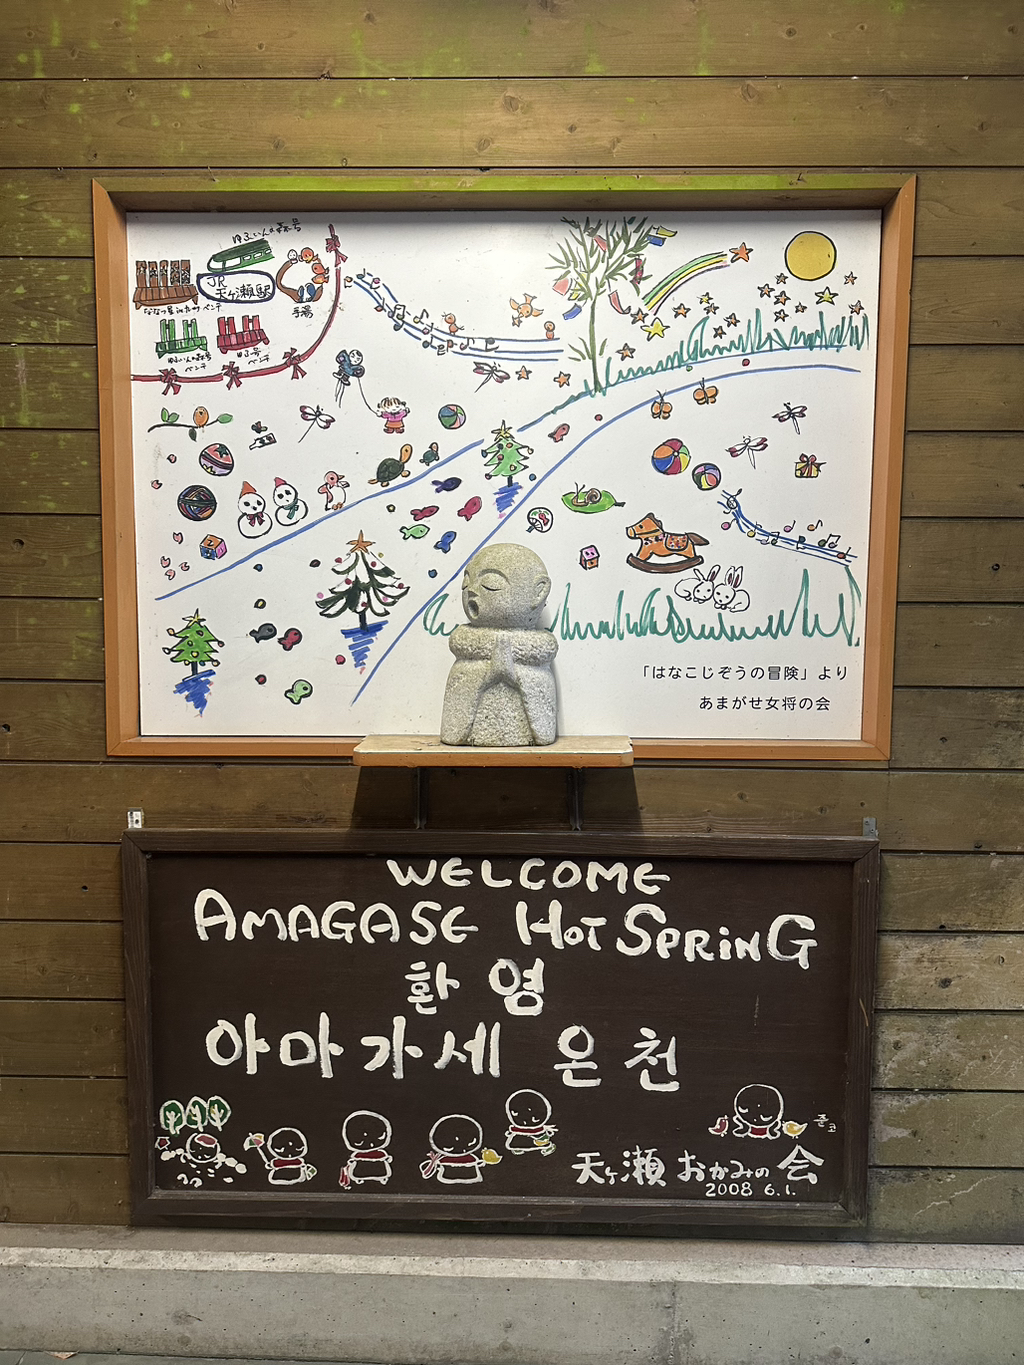 ゆふいんの森号
JR
天ヶ瀬駅
ななつ星 in 九州 ベンチ
手湯
ゆふいんの森号
ベンチ
ゆふ号
ベンチ
「はなこじぞうの冒険」より
あまがせ女将の会
WELCOME
AMAGASE HOT SPRING
환영
아마가세 온천
天ヶ瀬 おかみの会
2008 6.1.